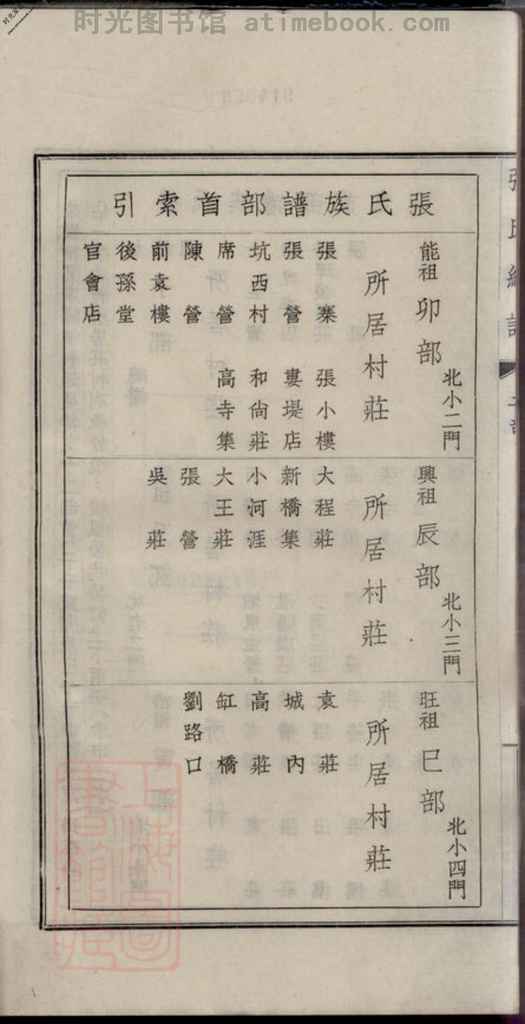 时光图书馆 atimebook.com
張氏族譜部首索引
能祖 卯部 北小二門
所居村莊
張寨 張小樓
張營 婁堤店
坑西村 和尙莊
席營 高寺集
陳營
前袁樓
後孫堂
官會店
興祖 辰部 北小三門
所居村莊
大程莊
新橋集
小河涯
大王莊
張營
吳莊
旺祖 巳部 北小四門
所居村莊
袁莊
城內
高莊
缸橋
劉路口